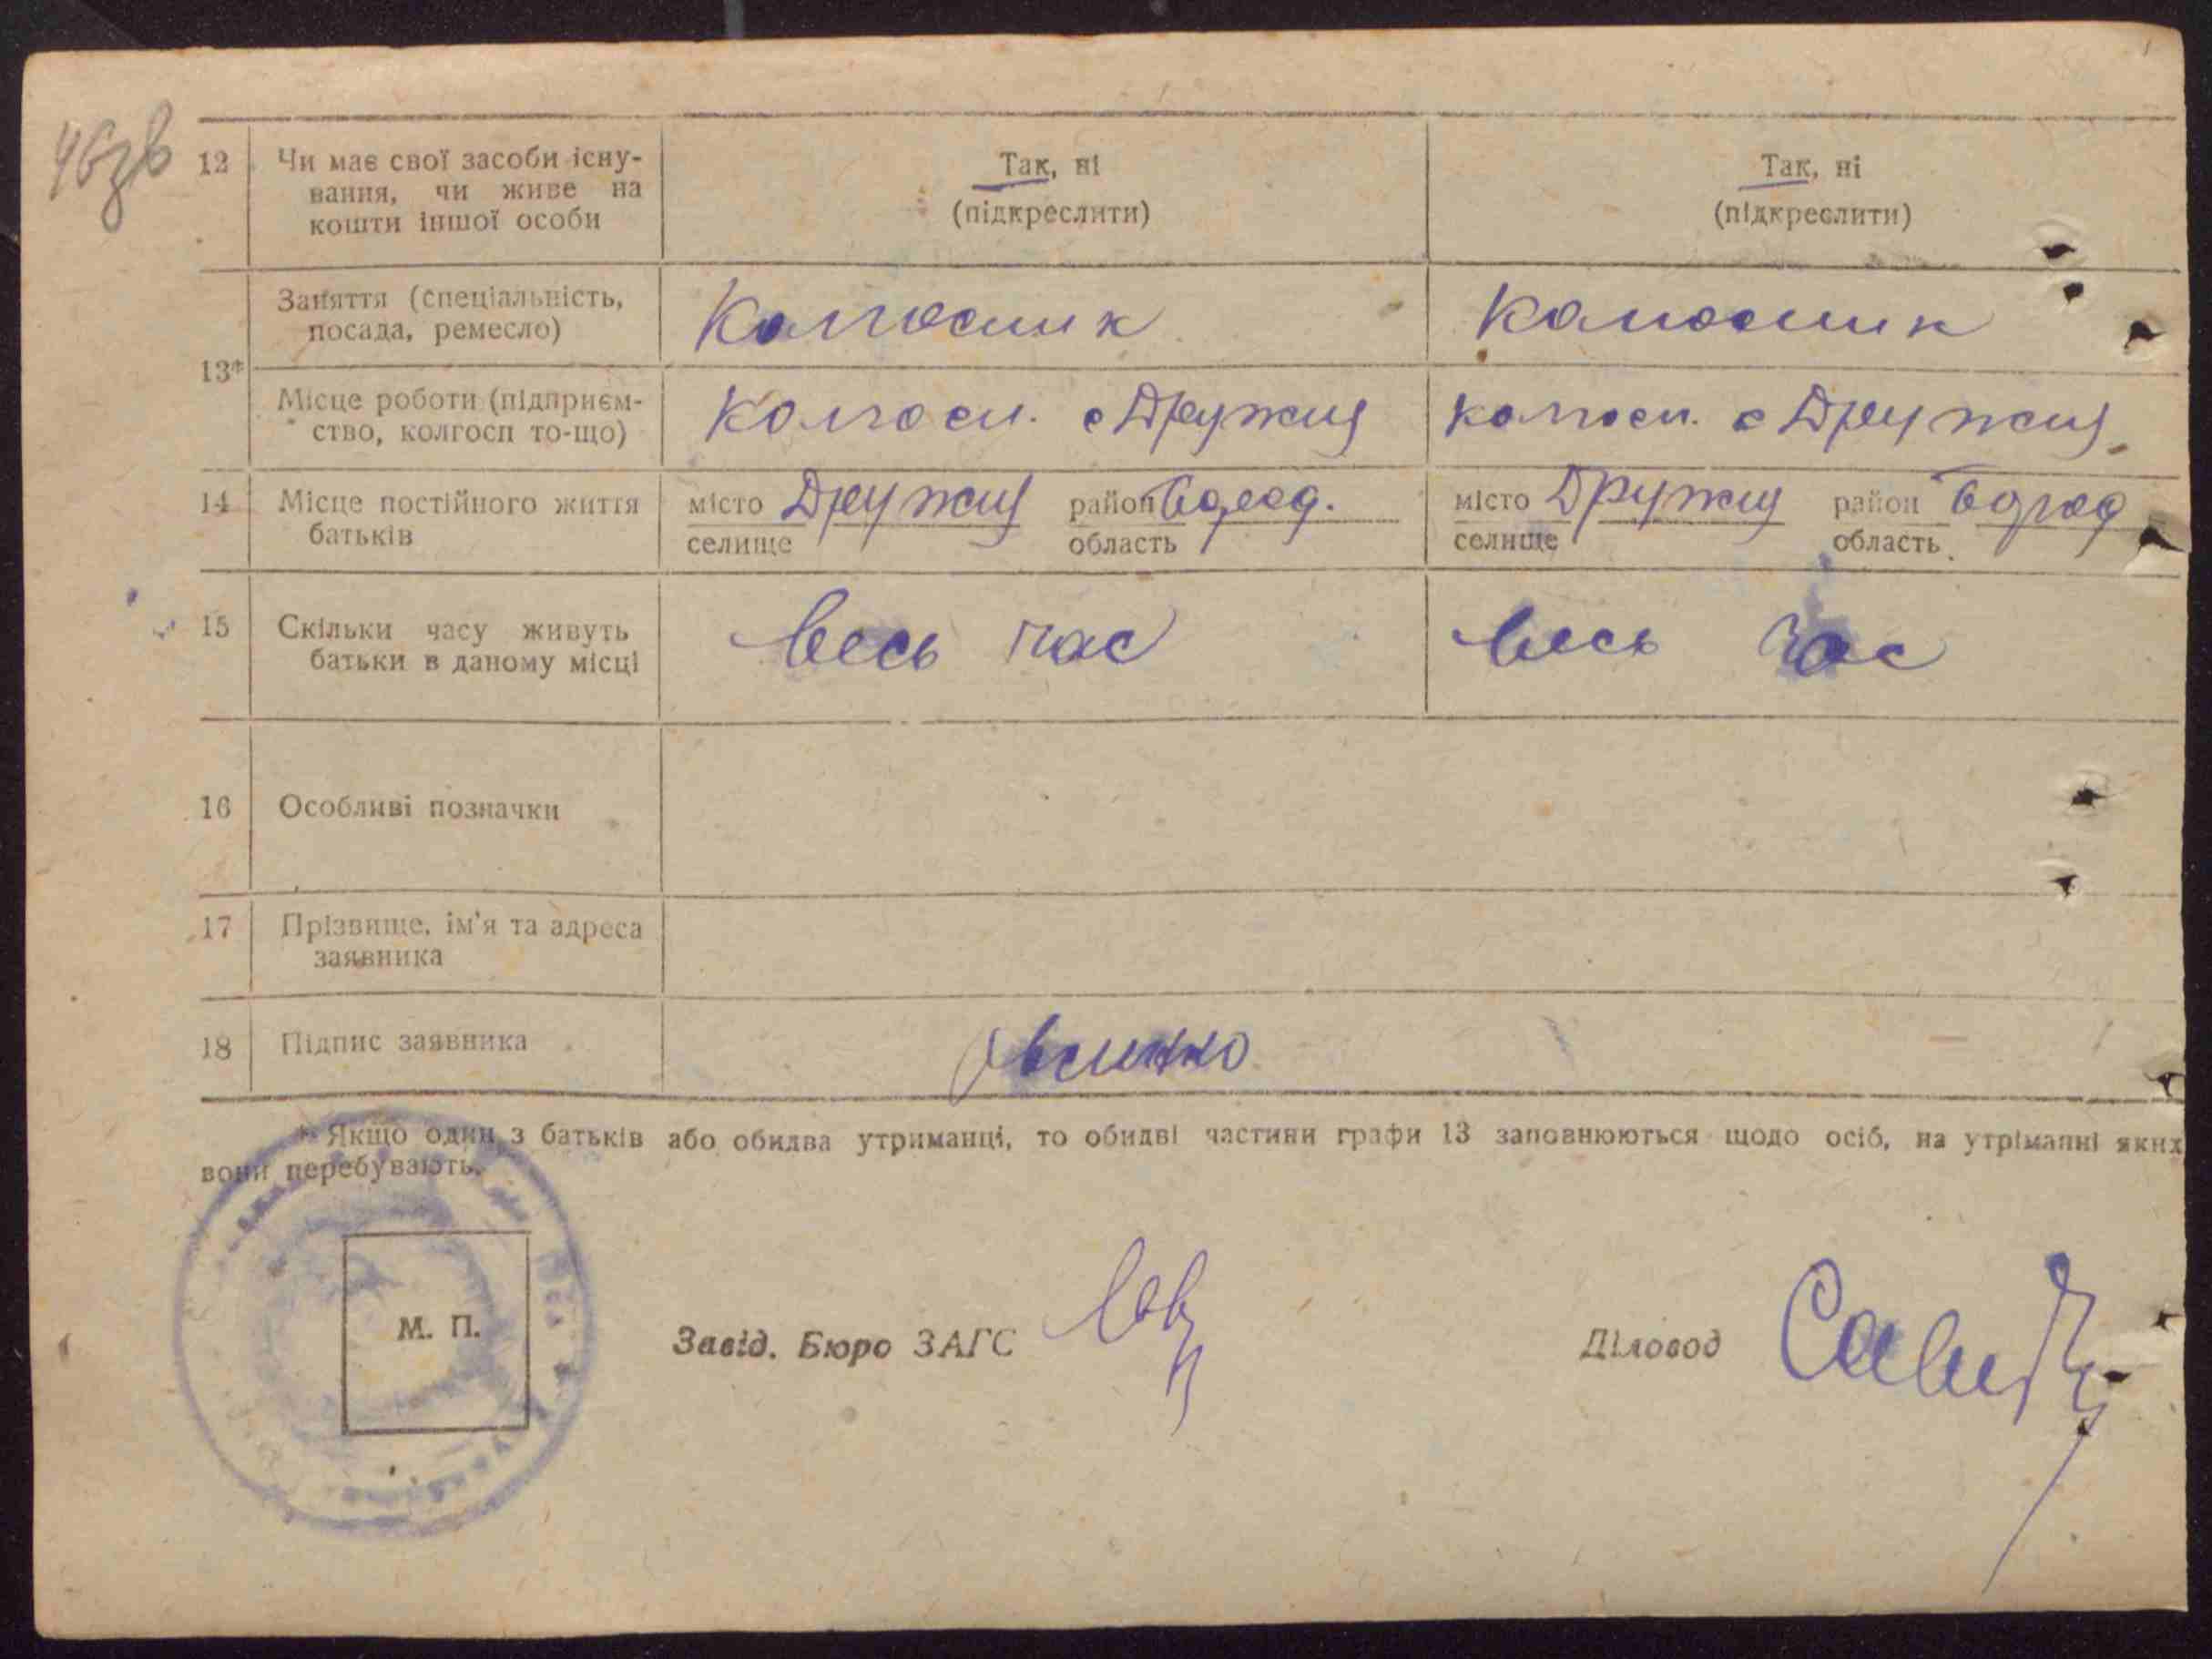 46зв
12 Чи має свої засоби існу- Так, ні Так, ні
вання, чи живе на (підкреслити) (підкреслити)
кошти іншої особи
Заняття (спеціальність, Колгоспник Колгоспник
посада, ремесло)
13*
Місце роботи (підприєм- Колгосп. с Дружня колгосп. с Дружня
ство, колгосп то-що)
14 Місце постійного життя місто Дружня район Бород. місто Дружня район Бород
батьків селище область селище область
15 Скільки часу живуть весь час весь час
батьки в даному місці
16 Особливі позначки
17 Прізвище, ім'я та адреса
заявника
18 Підпис заявника
* Якщо один з батьків або обидва утриманці, то обидві частини графи 13 заповнюються щодо осіб, на утріманні яких
вони перебувають.
М. П.
Завід. Бюро ЗАГС Діловод